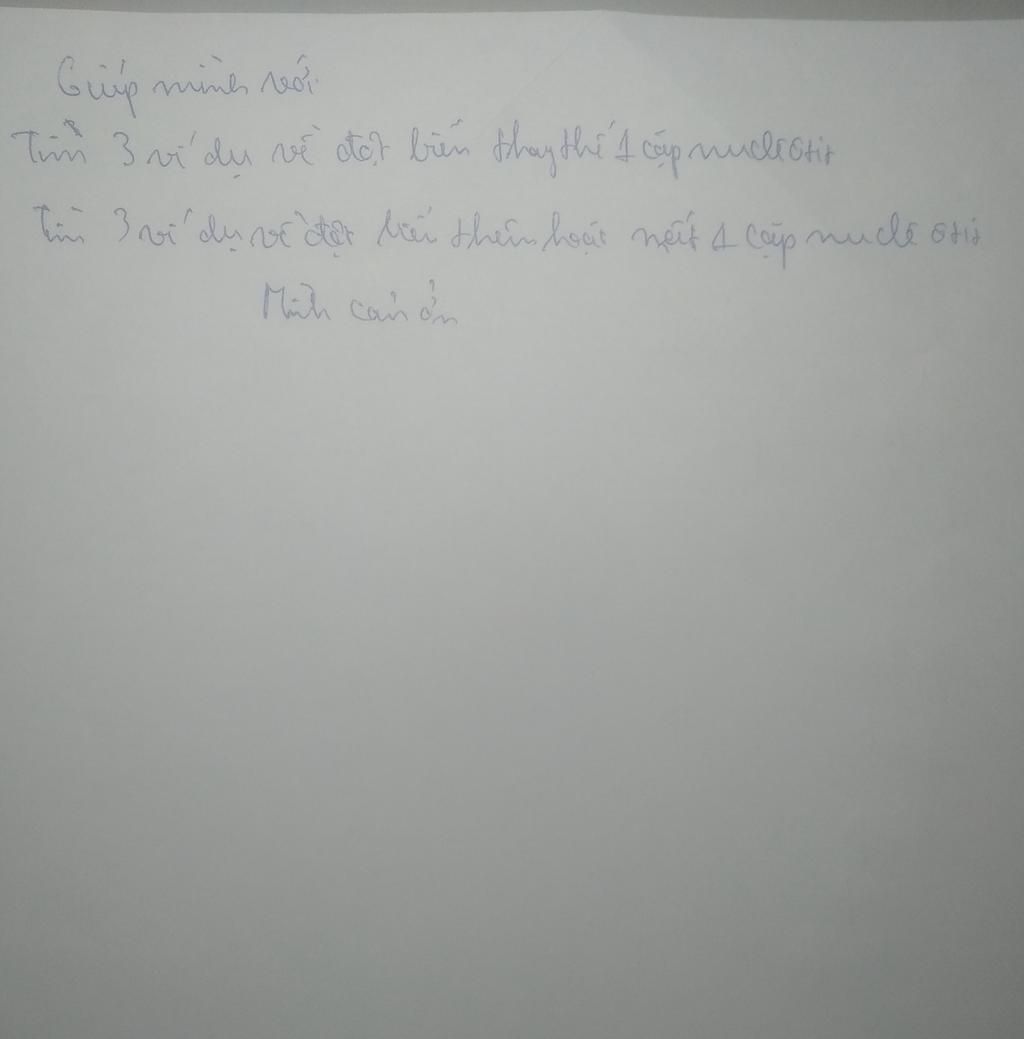 Giúp mình với
Tìm 3 ví dụ về đột biến thay thế 1 cặp nuclêôtit
Tìm 3 ví dụ về đột biến thêm hoặc mất 1 cặp nuclêôtit
Mình cảm ơn